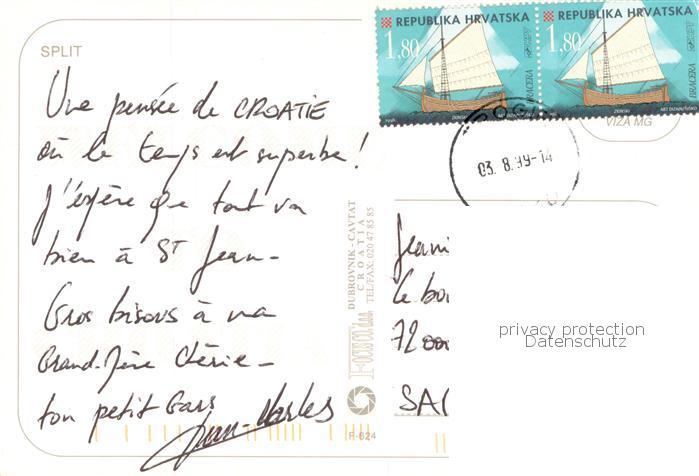 SPLIT
REPUBLIKA HRVATSKA
1,80
BRACERA
REPUBLIKA HRVATSKA
1,80
BRACERA
VIZA MG
03. 8. 99-14
Une pensée de CROATIE
où le temps est superbe !
J'espère que tout va
bien à St Jean -
Gros bisous à ma
Grand-Mère Chérie -
ton petit Gars
DUBROVNIK - CAVTAT
CROATIA
TEL/FAX: 020 47 85 85
F-624
le
72000
privacy protection
Datenschutz